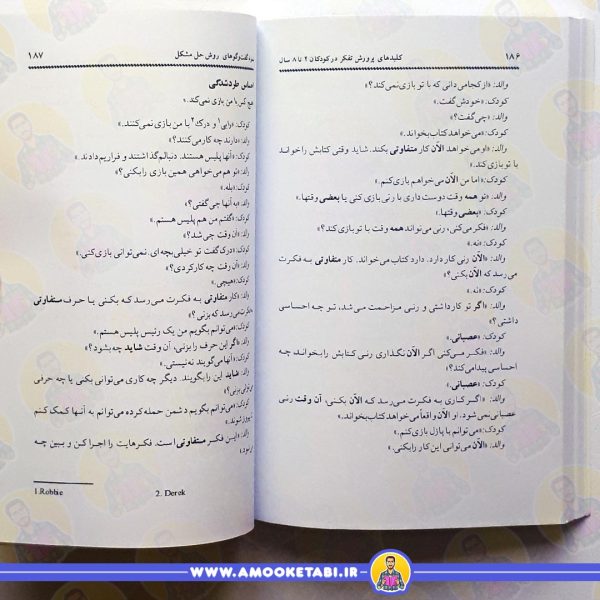 کلیدهای پرورش تفکر در کودکان ۲ تا ۸ سان
۱۸۶
والد: «از کجا می‌دانی که با تو بازی نمی‌کند؟»
کودک: «خودش گفت.»
والد: «چی گفت؟»
کودک: «می‌خواهد کتاب بخواند.»
والد: «او می‌خواهد الآن کار متفاوتی بکند. شاید وقتی کتابش را خواند
با تو بازی کند.»
کودک: «اما من الآن می‌خواهم بازی کنم.»
والد: «تو همه وقت دوست داری با رنی بازی کنی یا بعضی وقتها.»
کودک: «بعضی وقتها.»
والد: «فکر می‌کنی، رنی می‌تواند همه وقت با تو بازی کند؟»
کودک: «نه.»
والد: «الآن رنی کار دارد. دارد کتاب می‌خواند. کار متفاوتی به فکرت
می‌رسد که الآن بکنی؟»
کودک: «نه.»
والد: «اگر تو کار داشتی و رنی مزاحمت می‌شد، تو چه احساسی
داشتی؟»
کودک: «عصبانی.»
والد: «فکر می‌کنی اگر الآن نگذاری رنی کتابش را بخواند چه
احساسی پیدا می‌کند؟»
کودک: «عصبانی.»
والد: «اگر کاری به فکرت می‌رسد که الآن بکنی، آن وقت رنی
عصبانی نمی‌شود. او الآن واقعاً می‌خواهد کتاب بخواند.»
کودک: «می‌توانم با پازل بازی کنم.»
والد: «الآن می‌توانی این کار را بکنی.»
گفت‌وگوهای روش حل مشکل
۱۸۷
احساس طردشدگی
«هیچ کس با من بازی نمی‌کند.»
کودک: «رابی۱ و درک۲ با من بازی نمی‌کنند.»
والد: «دارند چه کار می‌کنند؟»
کودک: «آنها پلیس هستند. دنبالم گذاشتند و فراریم دادند.»
والد: «تو هم می‌خواهی همین بازی را بکنی؟»
کودک: «بله.»
والد: «به آنها چی گفتی؟»
کودک: «گفتم من هم پلیس هستم.»
والد: «آن وقت چی شد؟»
کودک: «درک گفت تو خیلی بچه‌ای. نمی‌توانی بازی کنی.»
والد: «آن وقت چه کار کردی؟»
کودک: «هیچی.»
والد: «کار متفاوتی به فکرت می‌رسد که بکنی یا حرف متفاوتی
به فکرت نمی‌رسد که بزنی؟»
کودک: «می‌توانم بگویم من یک رئیس پلیس هستم.»
والد: «اگر این حرف را بزنی، آن وقت شاید چه بشود؟»
کودک: «آنها می‌گویند نه نیستی.»
والد: «شاید این را بگویند. دیگر چه کاری می‌توانی بکنی یا چه حرفی
می‌توانی بزنی؟»
کودک: «می‌توانم بگویم دشمن حمله کرده می‌توانم به آنها کمک کنم
پیروز شوند.»
والد: «این فکر متفاوتی است. فکرهایت را اجرا کن و ببین چه
می‌شود.»
1.Robbie
2. Derek
WWW.AMOOKETABI.IR